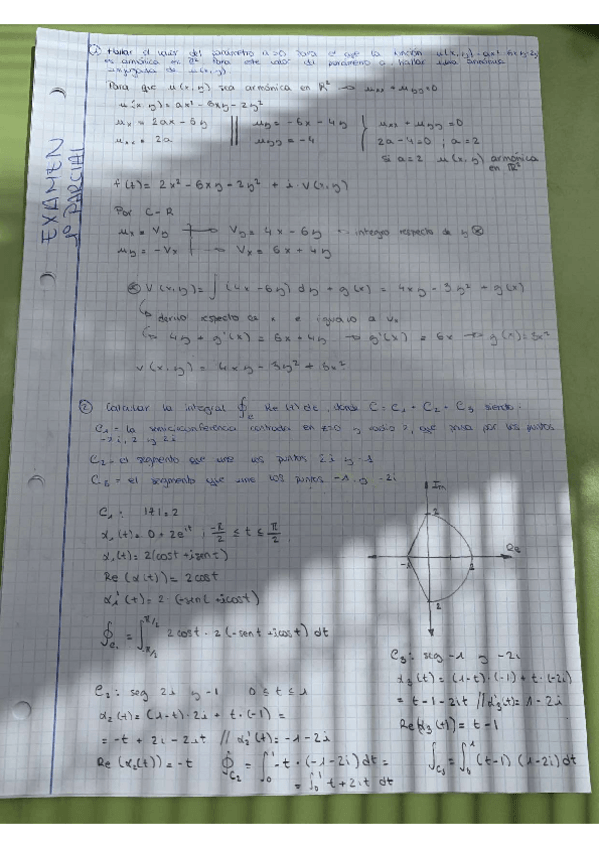 EXAMEN
1º PARCIAL
① Hallar el valor del parámetro a>0 para el que la función u(x,y)=ax²-6xy-2y²
es armónica en ℝ². Para este valor del parámetro a, hallar una armónica
conjugada de u(x,y)
Para que u(x,y) sea armónica en ℝ² → uxx + uyy=0
u(x,y)=ax²-6xy-2y²
ux = 2ax-6y || uy=-6x-4y } uxx + uyy =0
uxx = 2a || uyy=-4 2a-4=0 ; a=2
Si a=2 u(x,y) armónica
en ℝ²
f(t)= 2x²-6xy-2y² + i·V(x,y)
Por C-R
ux = Vy → Vy= 4x-6y → integro respecto de y ⊛
uy=-Vx → Vx= 6x+4y
⊛ V(x,y)= ∫(4x-6y) dy + g(x) = 4xy-3y² + g(x)
↳ derivo respecto de x e igualo a Vx
↳ 4y + g'(x) = 6x+4y → g'(x) = 6x → g(x)=3x²
V(x,y)= 4xy-3y²+3x²
② Calcular la integral ∮c Re(z)dz, donde C=C1+C2+C3 siendo:
C1= la semicircunferencia centrada en z=0 y radio 2, que pasa por los puntos
-2i, 2 y 2i
C2= el segmento que une los puntos 2i y -1
C3= el segmento que une los puntos -1 y -2i
Im
Re
2
-1
2
2
C1: |z|=2
α1(t)= 0+2e^it ; -π/2 ≤ t ≤ π/2
α1(t)= 2(cost+isent)
Re(α(t))= 2cost
α1'(t)= 2·(-sent+icost)
∮C1 = ∫-π/2^π/2 2cost·2(-sent+icost) dt
C2: seg 2i y -1 0≤t≤1
α2(t)= (1-t)·2i + t·(-1) =
= -t+2i-2it // α2'(t)=-1-2i
Re(α2(t)) = -t ∮C2 = ∫0^1 -t·(-1-2i)dt=
= ∫0^1 t+2it dt
C3: seg -1 y -2i
α3(t)= (1-t)·(-1)+t·(-2i)
= t-1-2it // α3'(t)= 1-2i
Re(α3(t))= t-1
∫C3 = ∫0^1 (t-1)(1-2i)dt